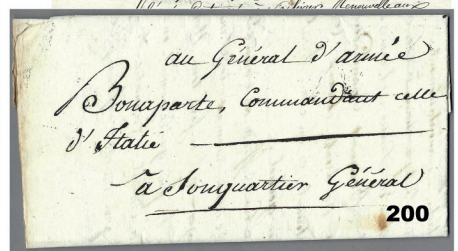 au Général d'armée
Bonaparte, Commandant celle
d'Italie
à Sonquartier Général
200